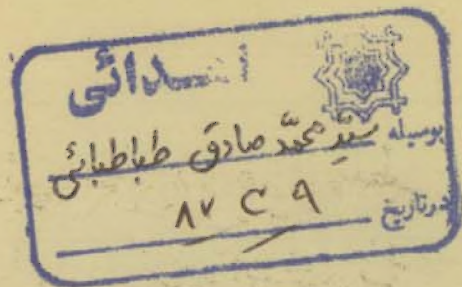 اهدائی
بوسیله سید محمد صادق طباطبائی
در تاریخ ۹ ۲ ۸۷